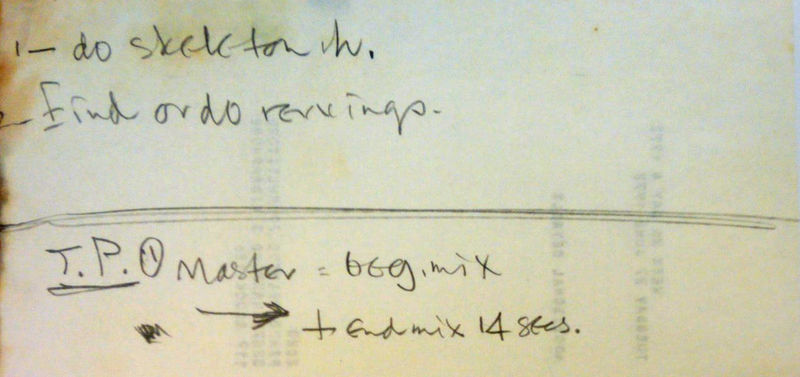 1- do skeleton
2- Find or do
T.P. ① Master = beg. mix
→ + End mix 14 secs.